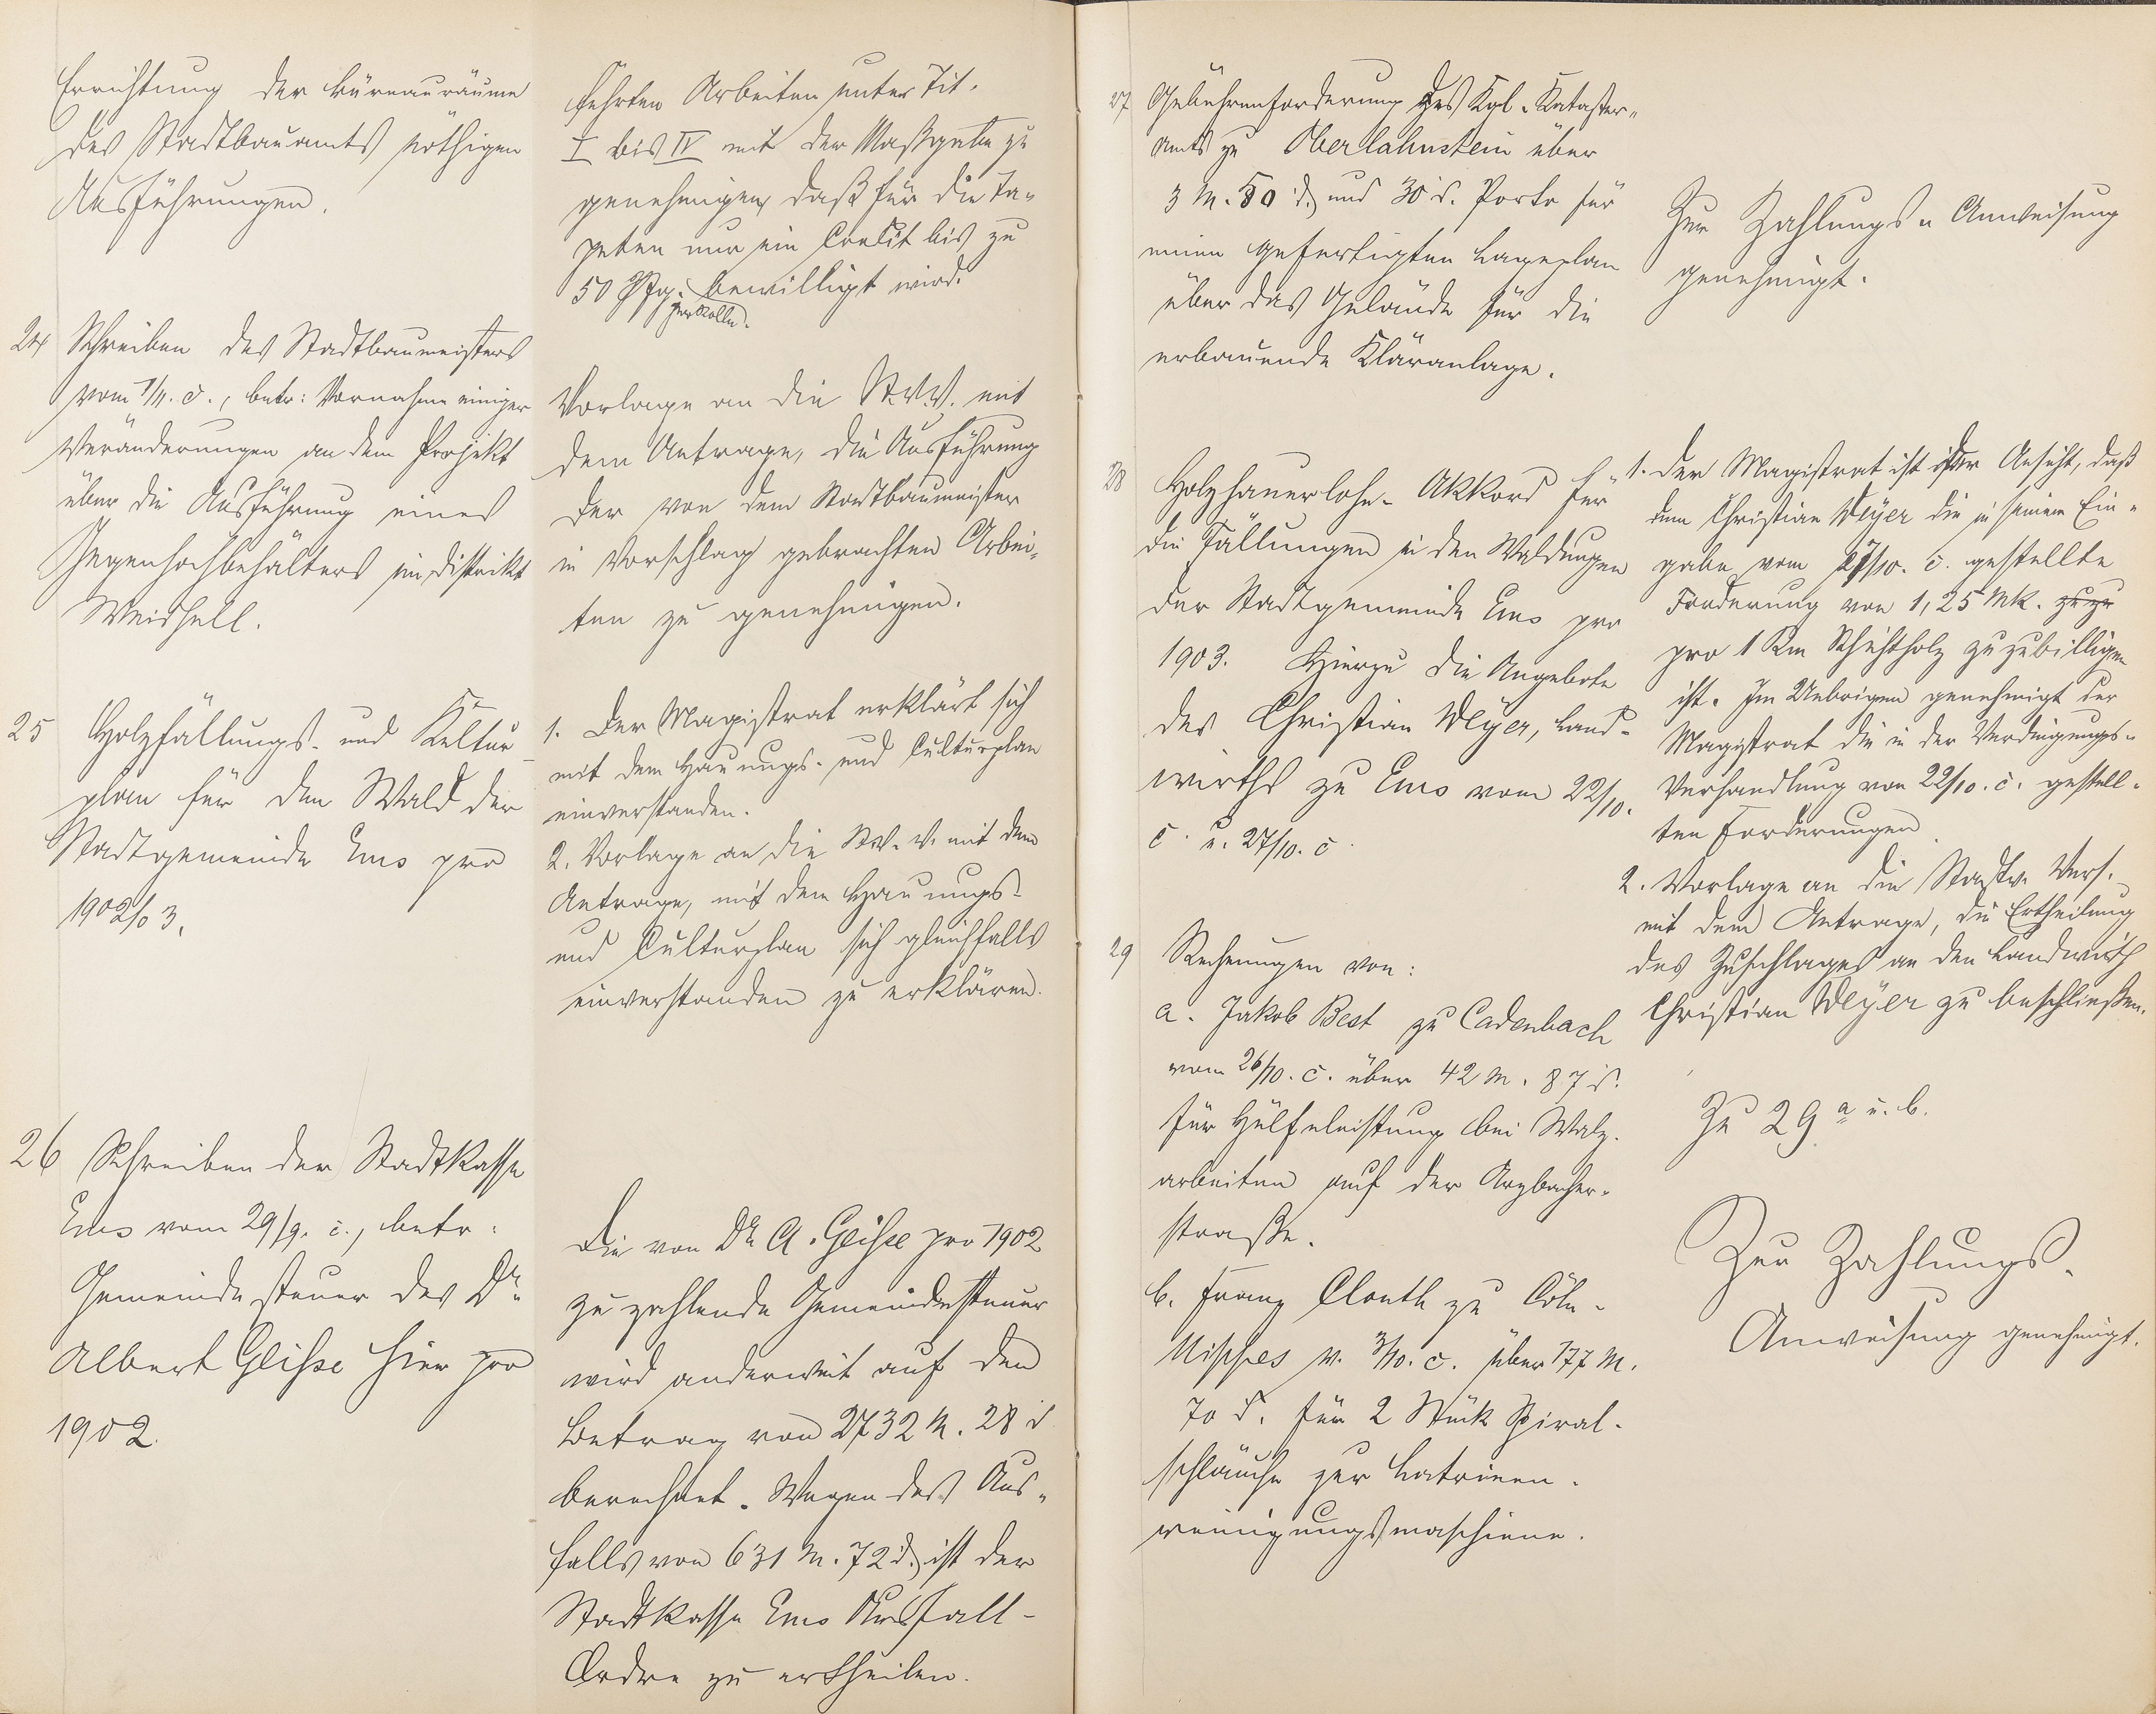 Errichtung der Büreauräume
des Stadtbauamts nöthigen
Ausführungen.
führten Arbeiten unter Tit.
I bis IV mit der Maßgabe zu
genehmigen, daß für die Ta-
peten nur ein Credit bis zu
50 Pfg. bewilligt wird.
per Rolle.
24 Schreiben des Stadtbaumeisters
vom 1/11. c., betr: Vornahme einiger
Veränderungen an dem Projekt
über die Ausführung eines
Gegenhochbehälters im Distrikt
Weidhell.
Vorlage an die St.V.V. mit
dem Antrage, die Ausführung
der von dem Stadtbaumeister
in Vorschlag gebrachten Arbei-
ten zu genehmigen.
25 Holzfällungs- und Kultur-
plan für den Wald der
Stadtgemeinde Ems pro
1902/03.
1. Der Magistrat erklärt sich
mit dem Hauungs- und Culturplan
einverstanden.
2. Vorlage an die St.V.V. mit dem
Antrage, mit dem Hauungs-
und Culturplan sich gleichfalls
einverstanden zu erklären.
26 Schreiben der Stadtkasse
Ems vom 29/9. c., betr.
Gemeindesteuer des Dr.
Albert Geisse hier pro
1902.
Die von Dr. A. Geisse pro 1902
zu zahlende Gemeindesteuer
wird anderweit auf den
Betrag von 2732 M. 28 d
berechnet. Wegen des Aus-
falls von 631 M. 72 d. ist der
Stadtkasse Ems Ausfall-
Ordre zu ertheilen.
27 Gebührenforderung des Kgl. Kataster-
amts zu Oberlahnstein über
3 M. 50 d. und 30 d. Porto für
einen gefertigten Lageplan
über das Gelände für die
erbauende Kläranlage.
Zur Zahlungs-Anweisung
genehmigt.
28 Holzhauerlohn-Akkord für
die Fällungen in den Waldungen
der Stadtgemeinde Ems pro
1903. Hierzu die Angebote
des Christian Weyer, Land-
wirths zu Ems vom 22/10.
c. u. 27/10. c.
1. Der Magistrat ist der Ansicht, daß
dem Christian Weyer die in seiner Ein-
gabe vom 27/10. c. gestellte
Forderung von 1,25 Mk. zu zu
pro 1 Rm Schichtholz zuzubilligen
ist. Im Uebrigen genehmigt der
Magistrat die in der Verdingungs-
Verhandlung von 22/10. c. gestell-
ten Forderungen.
2. Vorlage an die Stadtv. Vers.
mit dem Antrage, die Ertheilung
des Zuschlages an den Landwirth
Christian Weyer zu beschließen.
29 Rechnungen von:
a. Jakob Best zu Cadenbach
vom 26/10. c. über 42 M. 87 d.
für Hülfeleistung bei Walz-
arbeiten auf der Arzbacher-
straße.
b. Franz Clouth zu Cöln-
Nippes v. 3/10. c. über 177 M.
70 d. für 2 Stück Spiral-
schläuche zur Latrinen-
reinigungsmaschiene.
Zu 29 a u. b.
Zur Zahlungs-
Anweisung genehmigt.